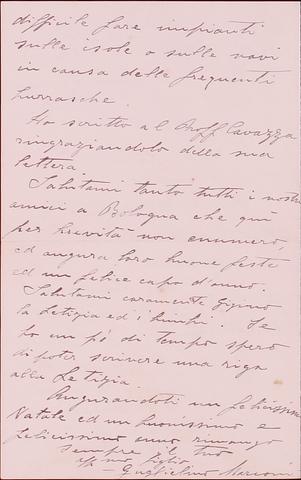 difficile fare impianti
sulle isole o sulle navi
in causa delle frequenti
burrasche.
Ho scritto al Proff Cavazza
ringraziandolo della sua
lettera
Salutami tanto tutti i nostri
amici a Bologna che quì
per brevità non enumero,
ed augura loro buone feste
ed un felice capo d'anno.
Salutami caramente Gigino
la Letizia ed i bimbi. Se
ho un pò di tempo spero
di poter scrivere una riga
alla Letizia.
Augurandoti un felicissimo
Natale ed un buonissimo e
felicissimo anno rimango
sempre il tuo
figlio
Guglielmo Marconi